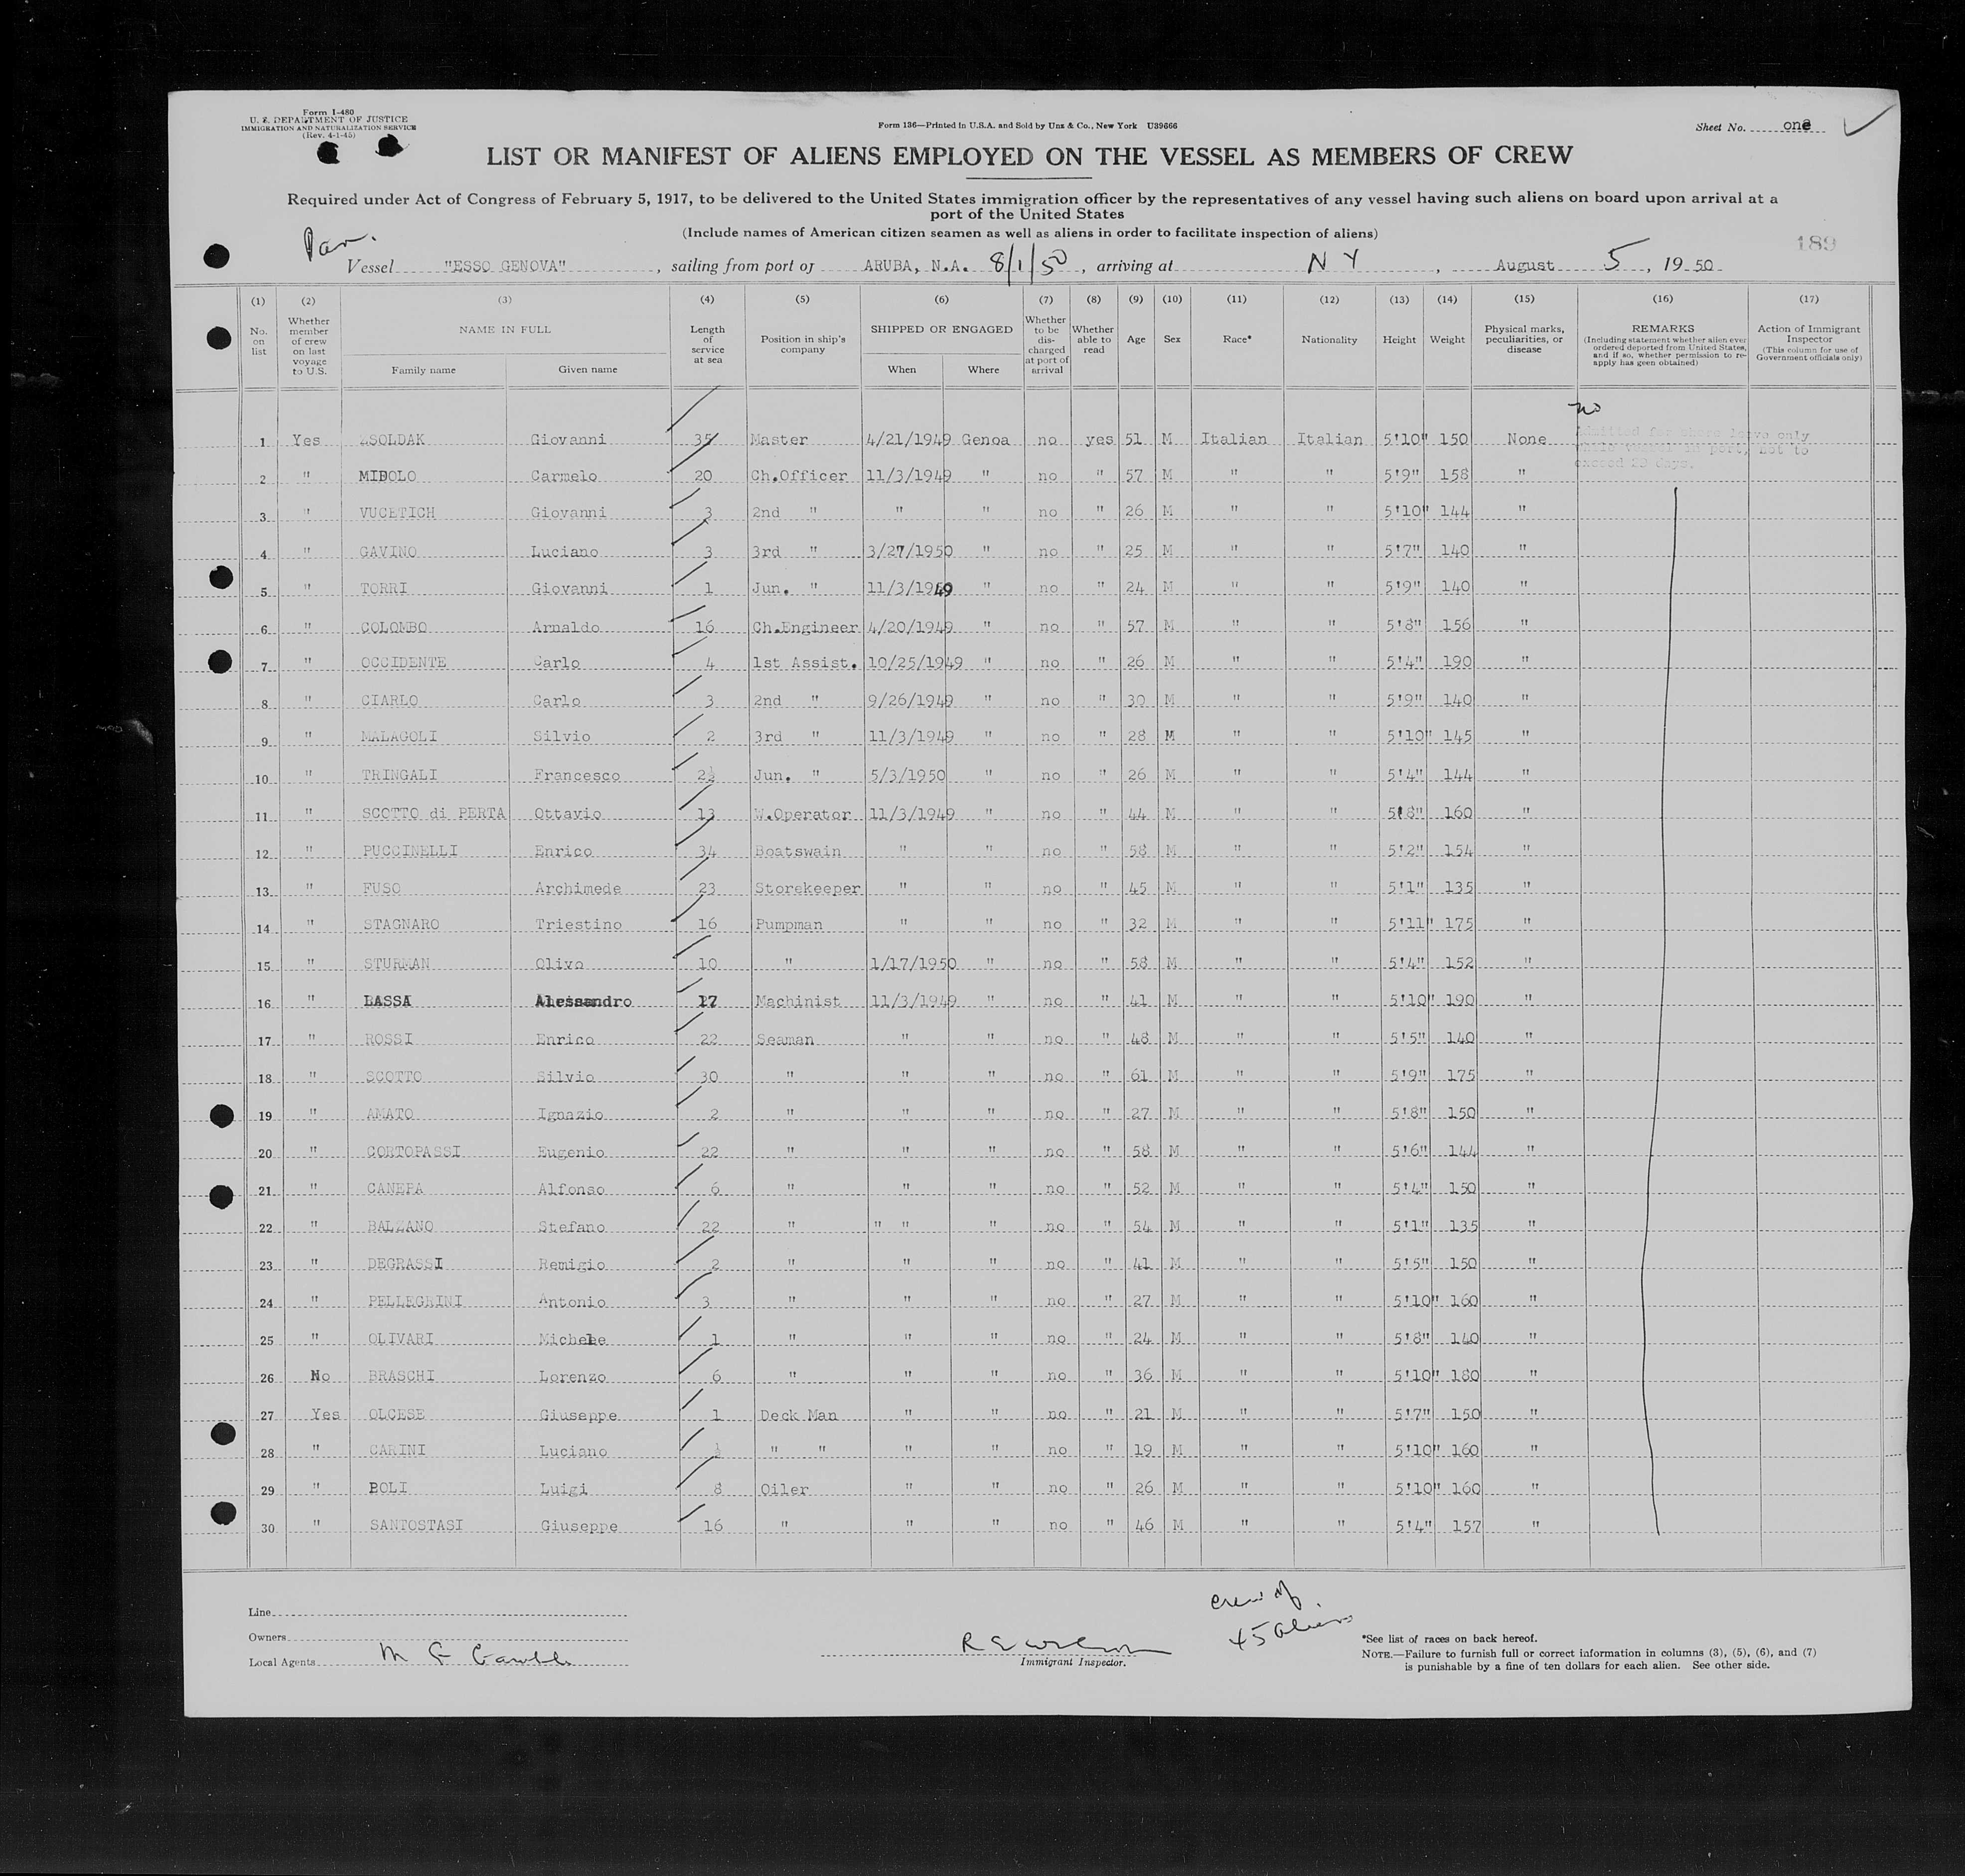 Form I-480
U. S. DEPARTMENT OF JUSTICE
IMMIGRATION AND NATURALIZATION SERVICE
(Rev. 4-1-45)
Form 136—Printed in U.S.A. and Sold by Unz & Co., New York U39666
Sheet No. one
LIST OR MANIFEST OF ALIENS EMPLOYED ON THE VESSEL AS MEMBERS OF CREW
Required under Act of Congress of February 5, 1917, to be delivered to the United States immigration officer by the representatives of any vessel having such aliens on board upon arrival at a
port of the United States
(Include names of American citizen seamen as well as aliens in order to facilitate inspection of aliens)
189
Vessel "ESSO GENOVA", sailing from port of ARUBA, N.A. 8/1/50, arriving at N Y, August 5, 1950
(1) (2) (3) (4) (5) (6) (7) (8) (9) (10) (11) (12) (13) (14) (15) (16) (17)
No. on list
Whether member of crew on last voyage to U.S.
NAME IN FULL
Family name Given name
Length of service at sea
Position in ship's company
SHIPPED OR ENGAGED
When Where
Whether to be discharged at port of arrival
Whether able to read
Age Sex Race* Nationality Height Weight
Physical marks, peculiarities, or disease
REMARKS
(Including statement whether alien ever ordered deported from United States, and if so, whether permission to reapply has geen obtained)
Action of Immigrant Inspector
(This column for use of Government officials only)
no
1 Yes ZSOLDAK Giovanni 35 Master 4/21/1949 Genoa no yes 51 M Italian Italian 5'10" 150 None
Admitted for shore leave only
while vessel in port, not to
exceed 29 days.
2 " MIBOLO Carmelo 20 Ch.Officer 11/3/1949 " no " 57 M " " 5'9" 158 "
3 " VUCETICH Giovanni 3 2nd " " " no " 26 M " " 5'10" 144 "
4 " GAVINO Luciano 3 3rd " 3/27/1950 " no " 25 M " " 5'7" 140 "
5 " TORRI Giovanni 1 Jun. " 11/3/1949 " no " 24 M " " 5'9" 140 "
6 " COLOMBO Arnaldo 16 Ch.Engineer 4/20/1949 " no " 57 M " " 5'8" 156 "
7 " OCCIDENTE Carlo 4 1st Assist. 10/25/1949 " no " 26 M " " 5'4" 190 "
8 " CIARLO Carlo 3 2nd " 9/26/1949 " no " 30 M " " 5'9" 140 "
9 " MALAGOLI Silvio 2 3rd " 11/3/1949 " no " 28 M " " 5'10" 145 "
10 " TRINGALI Francesco 2½ Jun. " 5/3/1950 " no " 26 M " " 5'4" 144 "
11 " SCOTTO di PERTA Ottavio 13 W.Operator 11/3/1949 " no " 44 M " " 5'8" 160 "
12 " PUCCINELLI Enrico 34 Boatswain " " no " 58 M " " 5'2" 154 "
13 " FUSO Archimede 23 Storekeeper " " no " 45 M " " 5'1" 135 "
14 " STAGNARO Triestino 16 Pumpman " " no " 32 M " " 5'11" 175 "
15 " STURMAN Olivo 10 " 1/17/1950 " no " 58 M " " 5'4" 152 "
16 " LASSA Alessandro 17 Machinist 11/3/1949 " no " 41 M " " 5'10" 190 "
17 " ROSSI Enrico 22 Seaman " " no " 48 M " " 5'5" 140 "
18 " SCOTTO Silvio 30 " " " no " 61 M " " 5'9" 175 "
19 " AMATO Ignazio 2 " " " no " 27 M " " 5'8" 150 "
20 " CORTOPASSI Eugenio 22 " " " no " 58 M " " 5'6" 144 "
21 " CANEPA Alfonso 6 " " " no " 52 M " " 5'4" 150 "
22 " BALZANO Stefano 22 " " " " no " 54 M " " 5'1" 135 "
23 " DEGRASSI Remigio 2 " " " no " 41 M " " 5'5" 150 "
24 " PELLEGRINI Antonio 3 " " " no " 27 M " " 5'10" 160 "
25 " OLIVARI Michele 1 " " " no " 24 M " " 5'8" 140 "
26 No BRASCHI Lorenzo 6 " " " no " 36 M " " 5'10" 180 "
27 Yes OLCESE Giuseppe 1 Deck Man " " no " 21 M " " 5'7" 150 "
28 " CARINI Luciano ½ " " " " no " 19 M " " 5'10" 160 "
29 " BOLI Luigi 8 Oiler " " no " 26 M " " 5'10" 160 "
30 " SANTOSTASI Giuseppe 16 " " " no " 46 M " " 5'4" 157 "
Line
Owners
Local Agents
crew of
45 aliens
Immigrant Inspector.
*See list of races on back hereof.
NOTE.—Failure to furnish full or correct information in columns (3), (5), (6), and (7)
is punishable by a fine of ten dollars for each alien. See other side.